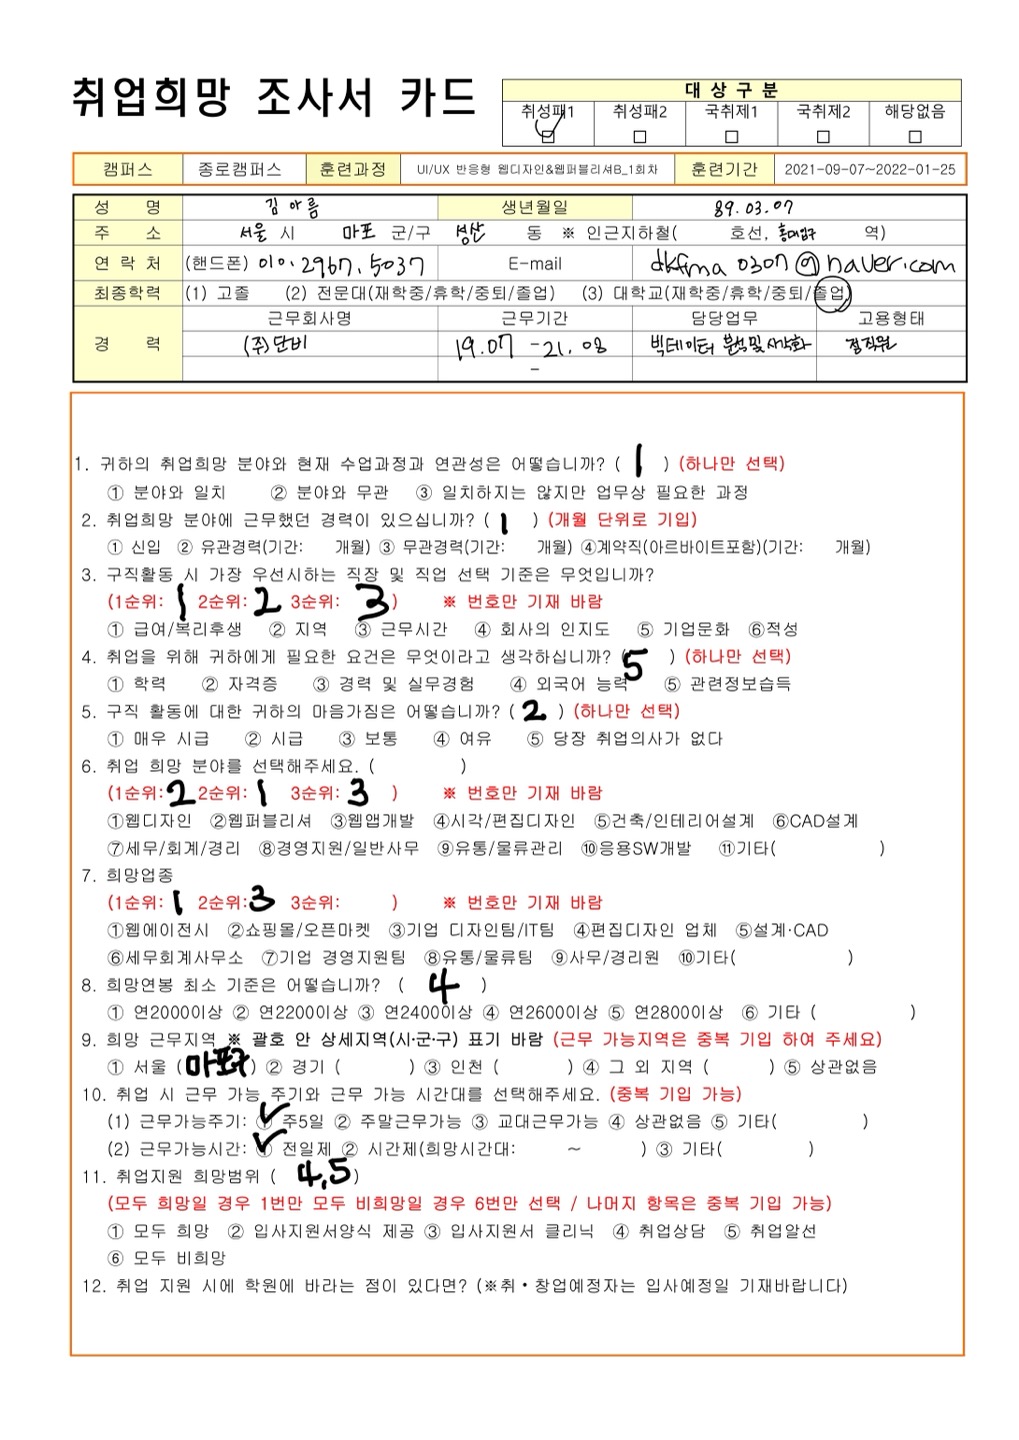 취업희망 조사서 카드
대 상 구 분
취성패1 취성패2 국취제1 국취제2 해당없음
☑ □ □ □ □
캠퍼스 종로캠퍼스 훈련과정 UI/UX 반응형 웹디자인&웹퍼블리셔B_1회차 훈련기간 2021-09-07~2022-01-25
성 명 김아름 생년월일 89.03.07
주 소 서울 시 마포 군/구 성산 동 ※ 인근지하철( 호선, 홍대입구 역)
연 락 처 (핸드폰) 010.2967.5037 E-mail dkfma0307@naver.com
최종학력 (1) 고졸 (2) 전문대(재학중/휴학/중퇴/졸업) (3) 대학교(재학중/휴학/중퇴/졸업)
경 력 근무회사명 근무기간 담당업무 고용형태
(주)단비 19.07 -21.08 빅테이터 분석및시각화 정직원
-
1. 귀하의 취업희망 분야와 현재 수업과정과 연관성은 어떻습니까? ( 1 ) (하나만 선택)
① 분야와 일치 ② 분야와 무관 ③ 일치하지는 않지만 업무상 필요한 과정
2. 취업희망 분야에 근무했던 경력이 있으십니까? ( 1 ) (개월 단위로 기입)
① 신입 ② 유관경력(기간: 개월) ③ 무관경력(기간: 개월) ④계약직(아르바이트포함)(기간: 개월)
3. 구직활동 시 가장 우선시하는 직장 및 직업 선택 기준은 무엇입니까?
(1순위: 1 2순위: 2 3순위: 3 ) ※ 번호만 기재 바람
① 급여/복리후생 ② 지역 ③ 근무시간 ④ 회사의 인지도 ⑤ 기업문화 ⑥적성
4. 취업을 위해 귀하에게 필요한 요건은 무엇이라고 생각하십니까? ( 5 ) (하나만 선택)
① 학력 ② 자격증 ③ 경력 및 실무경험 ④ 외국어 능력 ⑤ 관련정보습득
5. 구직 활동에 대한 귀하의 마음가짐은 어떻습니까? ( 2 ) (하나만 선택)
① 매우 시급 ② 시급 ③ 보통 ④ 여유 ⑤ 당장 취업의사가 없다
6. 취업 희망 분야를 선택해주세요. ( )
(1순위: 2 2순위: 1 3순위: 3 ) ※ 번호만 기재 바람
①웹디자인 ②웹퍼블리셔 ③웹앱개발 ④시각/편집디자인 ⑤건축/인테리어설계 ⑥CAD설계
⑦세무/회계/경리 ⑧경영지원/일반사무 ⑨유통/물류관리 ⑩응용SW개발 ⑪기타( )
7. 희망업종
(1순위: 1 2순위: 3 3순위: ) ※ 번호만 기재 바람
①웹에이전시 ②쇼핑몰/오픈마켓 ③기업 디자인팀/IT팀 ④편집디자인 업체 ⑤설계·CAD
⑥세무회계사무소 ⑦기업 경영지원팀 ⑧유통/물류팀 ⑨사무/경리원 ⑩기타( )
8. 희망연봉 최소 기준은 어떻습니까? ( 4 )
① 연2000이상 ② 연2200이상 ③ 연2400이상 ④ 연2600이상 ⑤ 연2800이상 ⑥ 기타 ( )
9. 희망 근무지역 ※ 괄호 안 상세지역(시·군·구) 표기 바람 (근무 가능지역은 중복 기입 하여 주세요)
① 서울 ( 마포구 ) ② 경기 ( ) ③ 인천 ( ) ④ 그 외 지역 ( ) ⑤ 상관없음
10. 취업 시 근무 가능 주기와 근무 가능 시간대를 선택해주세요. (중복 기입 가능)
(1) 근무가능주기: ① 주5일 ② 주말근무가능 ③ 교대근무가능 ④ 상관없음 ⑤ 기타( )
(2) 근무가능시간: ① 전일제 ② 시간제(희망시간대: ~ ) ③ 기타( )
11. 취업지원 희망범위 ( 4,5 )
(모두 희망일 경우 1번만 모두 비희망일 경우 6번만 선택 / 나머지 항목은 중복 기입 가능)
① 모두 희망 ② 입사지원서양식 제공 ③ 입사지원서 클리닉 ④ 취업상담 ⑤ 취업알선
⑥ 모두 비희망
12. 취업 지원 시에 학원에 바라는 점이 있다면? (※취·창업예정자는 입사예정일 기재바랍니다)